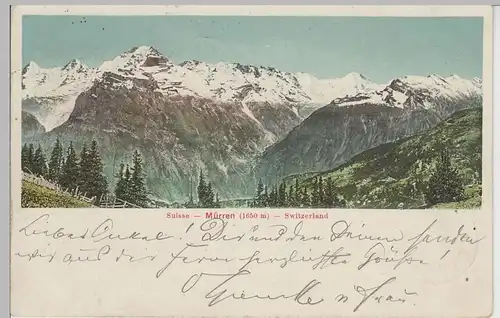 Suisse — Mürren (1650 m) — Switzerland
Lieber Onkel! Dir und den Deinen senden
wir aus der Ferne herzlichste Grüße!
u Frau.